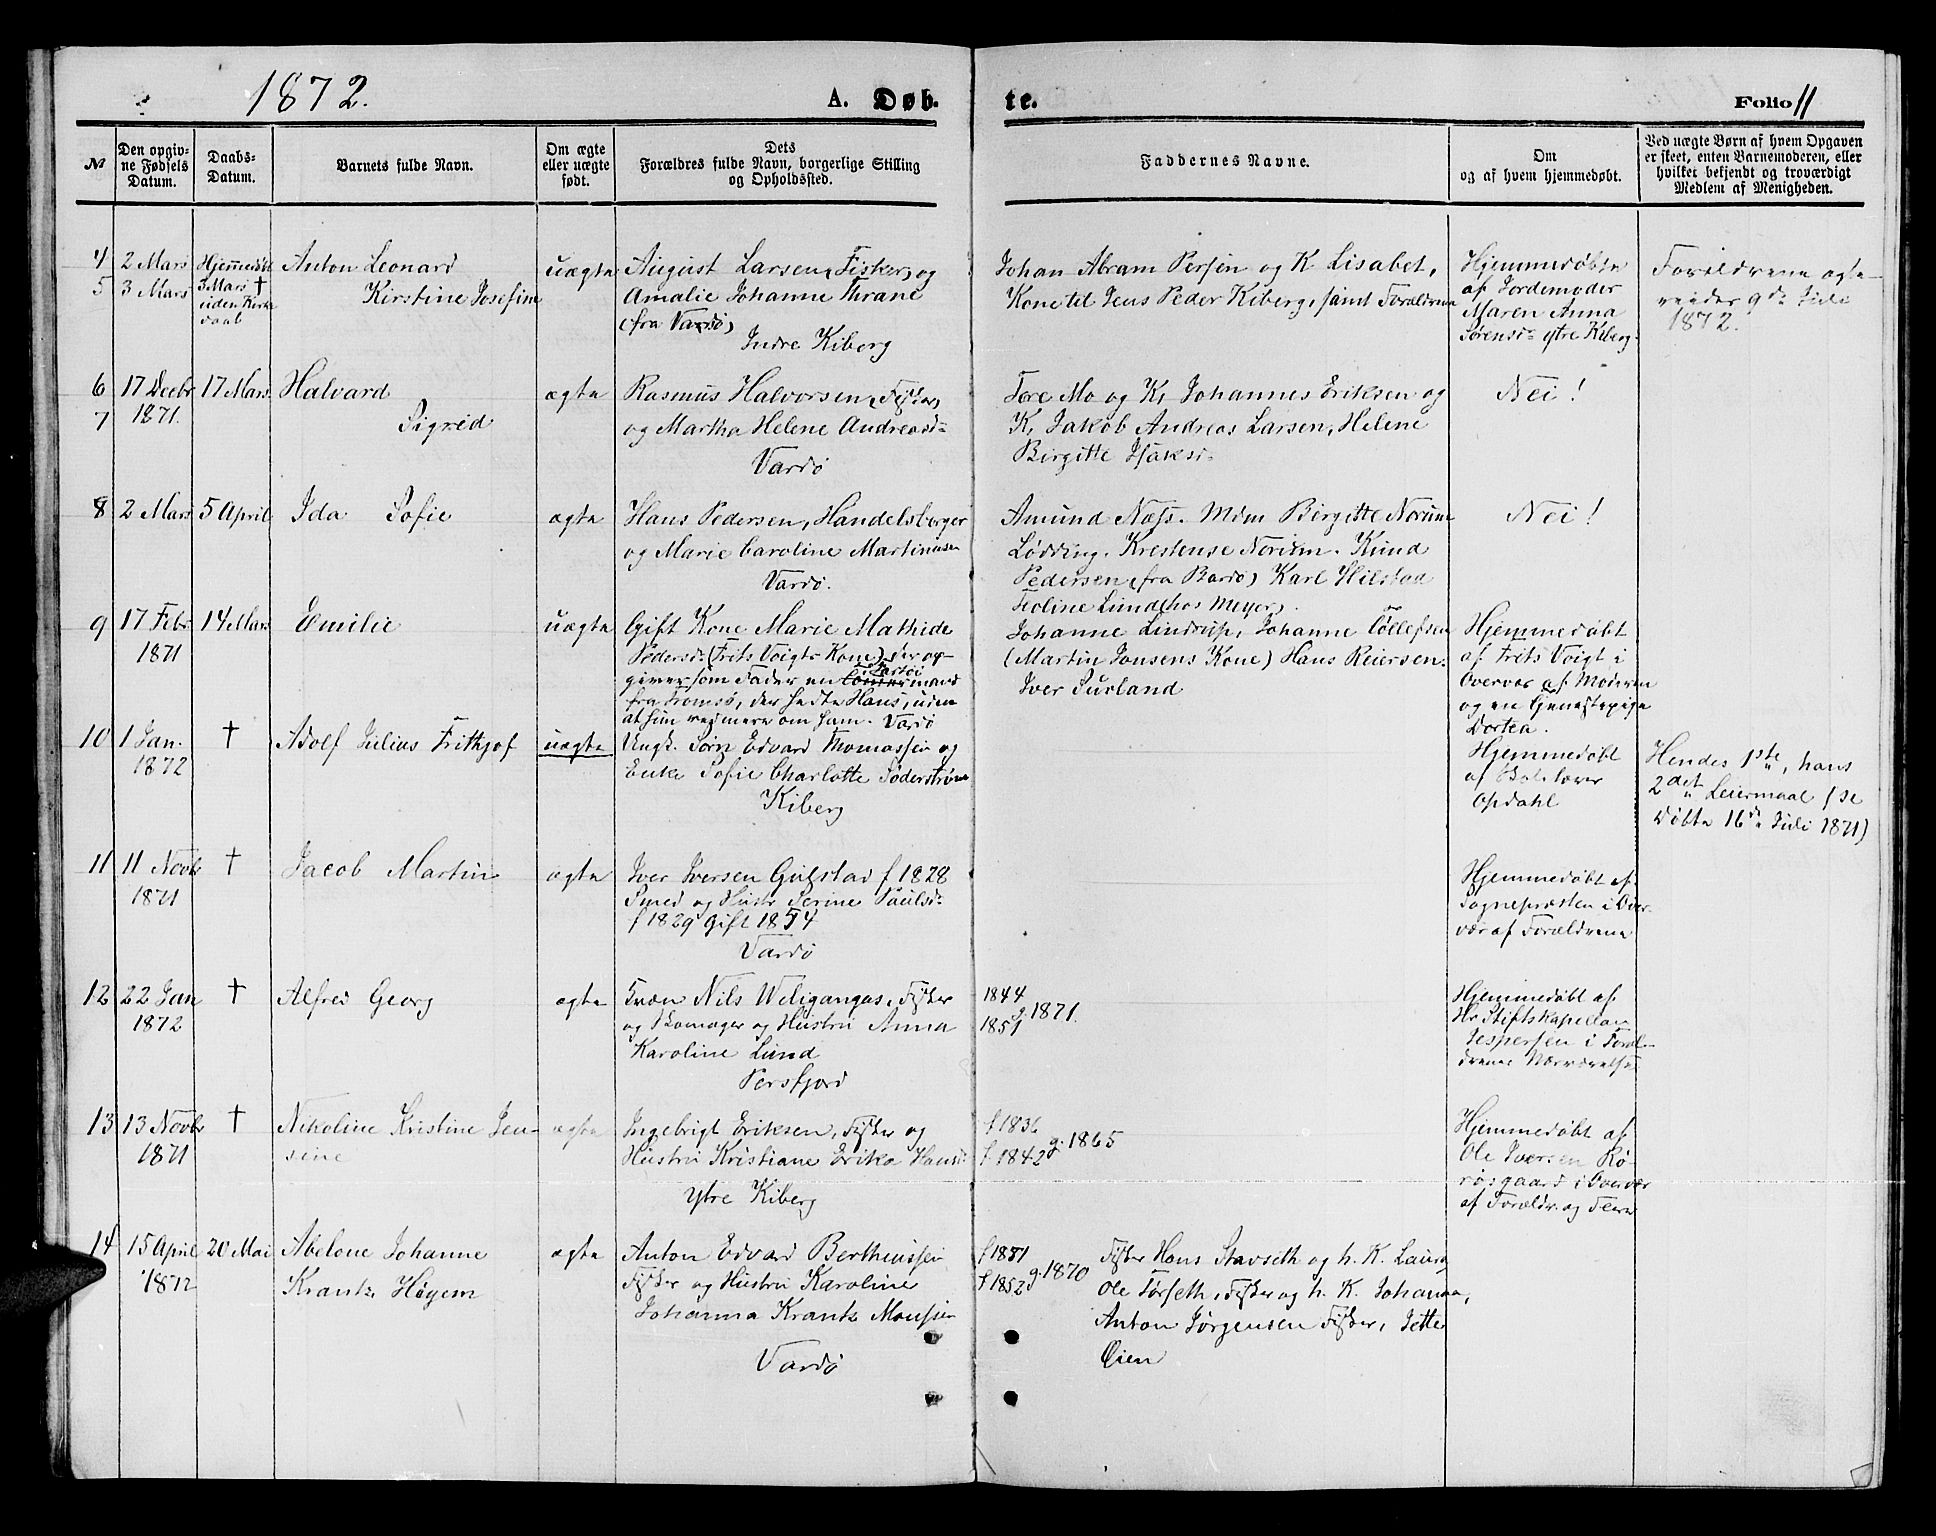 1872.
A. Døb-
te.
Folio 11
№
Den opgiv-
ne Fødsels
Datum.
Daabs-
Datum.
Barnets fulde Navn.
Om ægte
eller uægte
født.
Dets
Forældres fulde Navn, borgerlige Stilling
og Opholdssted.
Faddernes Navne.
Om
og af hvem hjemmedøbt.
Ved uægte Børn af hvem Opgaven
er skeet, enten Barnemoderen, eller
hvilket bekjendt og troværdigt
Medlem af Menigheden.
4
5
2 Mars
3 Mars
Hjemmedøbt
3 Mars †
uden Kirke
daab
Anton Leonard
Kirstine Josefine
uægte
August Larsen, Fisker, og
Amalie Johanne Thrane
(fra Vardø)
Indre Kiberg
Johan Abram Persen og K. Lisabet,
Kone til Jens Peder Kiberg, samt Forældrene
Hjemmedøbte
af Jordemoder
Maren Anna
Sørensd. ytre Kiberg.
Forældrene ægte-
viedes 9de Juli
1872.
6
7
17 Decbr
1871.
17 Mars
Halvard
Sigrid
ægte
Rasmus Halvorsen, Fisker,
og Martha Helene Andreasd.
Vardø
Tore Mo og K, Johannes Eriksen og
K, Jakob Andreas Larsen, Helene
Birgitte Isaksd.
Nei!
8
2 Mars
5 April
Ida Sofie
ægte
Hans Pedersen, Handelsborger
og Marie Caroline Martinusen
Vardø.
Amund Næss. Mdm Birgitte Norum
Lødding. Krestense Norum. Knud
Pedersen (fra Bardo) Karl Hilstad
Feoline Lund (hos Meyer).
Nei!
9
17 Febr
1871
14 Mars
Emilie
uægte
Gift Kone Marie Mathide
Pedersd. (Frits Voigts Kone) der op-
giver som Fader en mand
fra Tromsø, der hedte Hans, uden
at hun ved mere om ham. Vardø
Johanne Lindrup, Johanne Tollefsen
(Martin Jonsens Kone) Hans Reiersen.
Iver Surland
Hjemmedøbt
af Frits Voigt i
Overvær af Moderen
og en Tjenestepige
Dortea.
10
1 Jan.
1872
†
Adolf Julius Frithjof
uægte
Ungk. Sørn Edvard Thomassen og
Enke Sofie Charlotte Søderstrøm
Kiberg
Hjemmedøbt
af Skolelærer
Opdahl
Hendes 1ste, hans
2det Leiermaal (se
døbte 16de Juli 1871)
11
11 Novbr
1871
†
Jacob Martin
ægte
Iver Iversen Gulstad f 1828
Smed og Hustr Serine Paulsd.
f 1829 gift 1854
Vardø
Hjemmedøbt af
Sognepresten i Over-
vær af Forældrene
12
22 Jan
1872
†
Alfred Georg
ægte
Kvæn Nils Weligangas, Fisker
og Skomager og Hustru Anna
Karoline Lund
Persfjord
1844
1851
g. 1871.
Hjemmedøbt af
Hr Stiftskapellan
Jespersen i Foræl-
drenes Nærværelse
13
13 Novbr
1871
†
Nikoline Kristine Jen-
sine
ægte
Ingebrigt Eriksen, Fisker og
Hustru Kristiane Erika Hansd.
ytre Kiberg
f 1836
f 1842
g. 1865
Hjemmedøbt af
Ole Iversen Rø-
rosgaard i Overvær
af Forældr. og Flere
14
15 April
1872
20 Mai
Abelone Johanne
Krantz Høgem
ægte
Anton Edvard Bertheussen
Fisker og Hustru Karoline
Johanna Krantz Monsen
Vardø
f 1851
f 1852
g. 1870
Fisker Hans Stavseth og h. K. Laura
Ole Torseth, Fisker og h. K. Johanna,
Anton Jørgensen Fisker, Jette
Øien